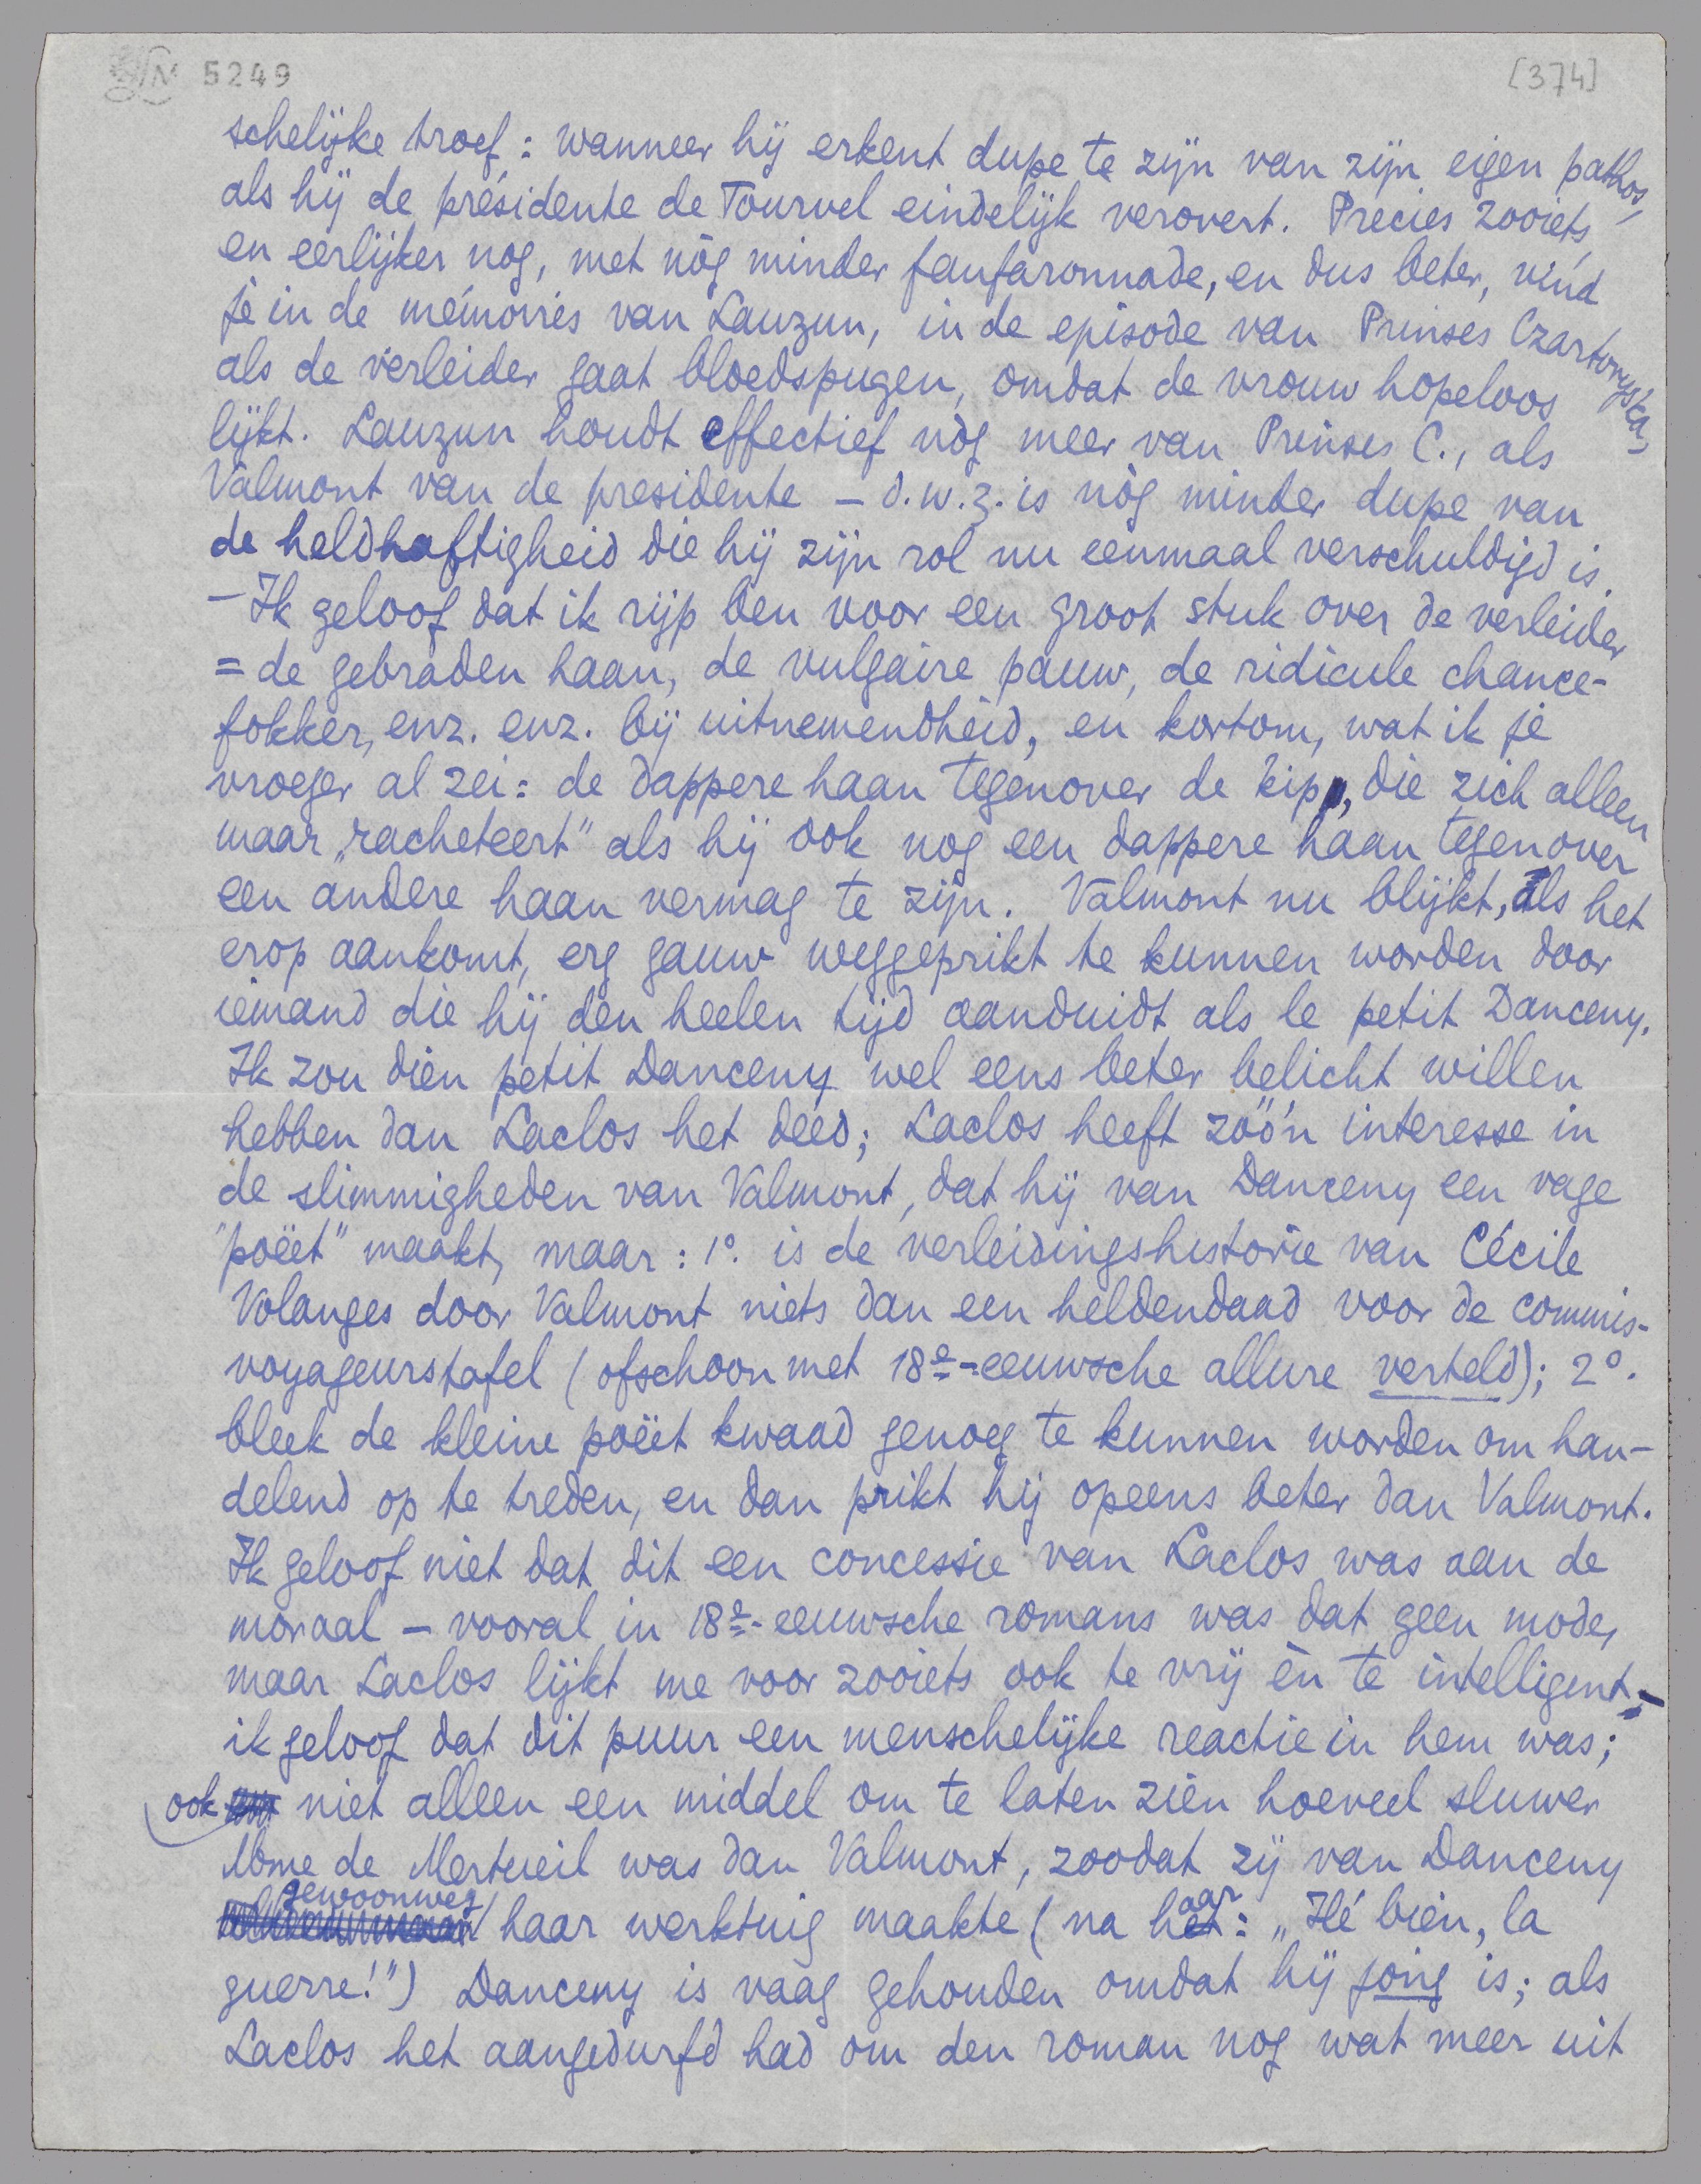 5249
[374]
schelijke troef: wanneer hij erkent dupe te zijn van zijn eigen pathos,
als hij de présidente de Tourvel eindelijk verovert. Precies zooiets,
en eerlijker nog, met nòg minder fanfaronnade, en dus beter, vind
je in de mémoires van Lauzun, in de episode van Prinses Czartoryska,
als de verleider gaat bloedspugen, omdat de vrouw hopeloos
lijkt. Lauzun houdt effectief nòg meer van Prinses C., als
Valmont van de presidente – d.w.z. is nòg minder dupe van
de heldhaftigheid die hij zijn rol nu eenmaal verschuldigd is.
– Ik geloof dat ik rijp ben voor een groot stuk over de verleider
= de gebraden haan, de vulgaire pauw, de ridicule chance-
fokker, enz. enz. bij uitnemendheid, en kortom, wat ik je
vroeger al zei: de dappere haan tegenover de kip, die zich alleen
maar „racheteert” als hij ook nog een dappere haan tegenover
een andere haan vermag te zijn. Valmont nu blijkt, als het
erop aankomt, erg gauw weggeprikt te kunnen worden door
iemand die hij den heelen tijd aanduidt als le petit Danceny.
Ik zou dien petit Danceny wel eens beter belicht willen
hebben dan Laclos het deed; Laclos heeft zóó'n interesse in
de slimmigheden van Valmont, dat hij van Danceny een vage
"poëet" maakt, maar: 1º. is de verleidingshistorie van Cécile
Volanges door Valmont niets dan een heldendaad voor de commis-
voyageurstafel (ofschoon met 18e-eeuwsche allure verteld); 2º.
bleek de kleine poëet kwaad genoeg te kunnen worden om han-
delend op te treden, en dan prikt hij opeens beter dan Valmont.
Ik geloof niet dat dit een concessie van Laclos was aan de
moraal – vooral in 18e-eeuwsche romans was dat geen mode,
maar Laclos lijkt me voor zooiets ook te vrij èn te intelligent; –
ik geloof dat dit puur een menschelijke reactie in hem was;
ook niet alleen een middel om te laten zien hoeveel sluwer
Mme de Merteuil was dan Valmont, zoodat zij van Danceny
gewoonweg haar werktuig maakte (na haar: „Hé bien, la
guerre!”) Danceny is vaag gehouden omdat hij jong is; als
Laclos het aangedurfd had om den roman nog wat meer uit